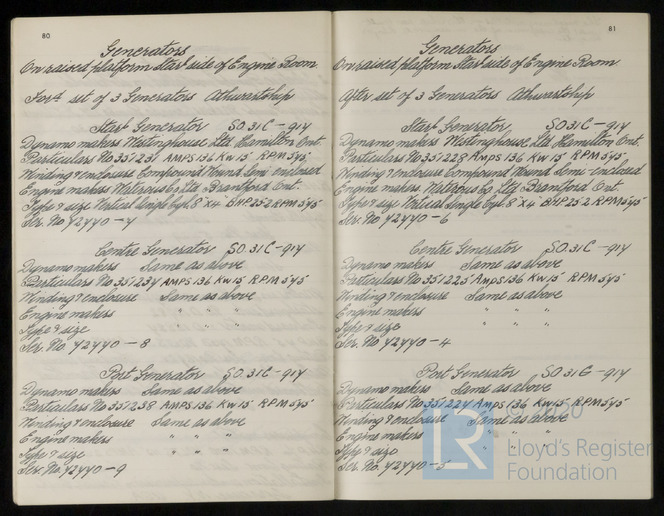 80
Generators
On raised platform Starb side of Engine Room
For'd set of 3 Generators Athwartship
Starb Generator SO 31C-914
Dynamo makers Westinghouse Ltd Hamilton Ont.
Particulars No 351231 AMPS 136 KW 15 RPM 545
Winding & enclosure Compound Wound Semi enclosed
Engine makers Watrous Co Ltd Branford Ont.
Type & size Vertical Single Cyl. 8"x4 BHP 25.2 RPM 545
Ser. No Y2440-7
Centre Generator SO.31C-914
Dynamo makers Same as above
Particulars No 351234 AMPS 136 KW 15 RPM 545
Winding & enclosure Same as above
Engine makers " " "
Type & size " " "
Ser. No. Y2440-8
Port Generator SO 31C-914
Dynamo makers Same as above
Particulars No 351238 AMPS 136 KW 15 RPM 545
Winding & enclosure Same as above
Engine makers " " "
Type & size " " "
Ser. No. Y2440-9
81
Generators
On raised platform Starb side of Engine Room
After set of 3 Generators Athwartship
Starb Generator SO.31C-914
Dynamo makers Westinghouse Ltd Hamilton Ont.
Particulars No 351228 AMPS 136 KW 15 RPM 545
Winding & enclosure Compound Wound Semi-enclosed
Engine makers Watrous Co Ltd Branford Ont.
Type & size Vertical Single Cyl 8"x4 BHP 25.2 RPM 545
Ser. No Y2440-6
Centre Generator SO.31C-914
Dynamo makers Same as above
Particulars No 351225 AMPS 136 KW 15 RPM 545
Winding & enclosure Same as above
Engine makers " " "
Type & size " " "
Ser. No. Y2440-4
Port Generator SO 31C-914
Dynamo makers Same as above
Particulars No 351224 AMPS 136 KW 15 RPM 545
Winding & enclosure Same as above
Engine makers " " "
Type & size " " "
Ser. No. Y2440-5
© 2020
LR
Lloyd's Register
Foundation